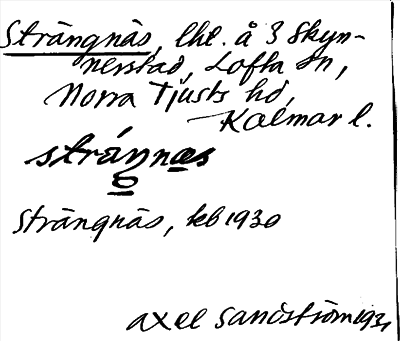 Strängnäs, lht. å 3 Skyn-
nerstad, Lofta sn,
Norra Tjusts hd,
Kalmar l.
strännas
Strängnäs, kb 1930
Axel Sandström 1931